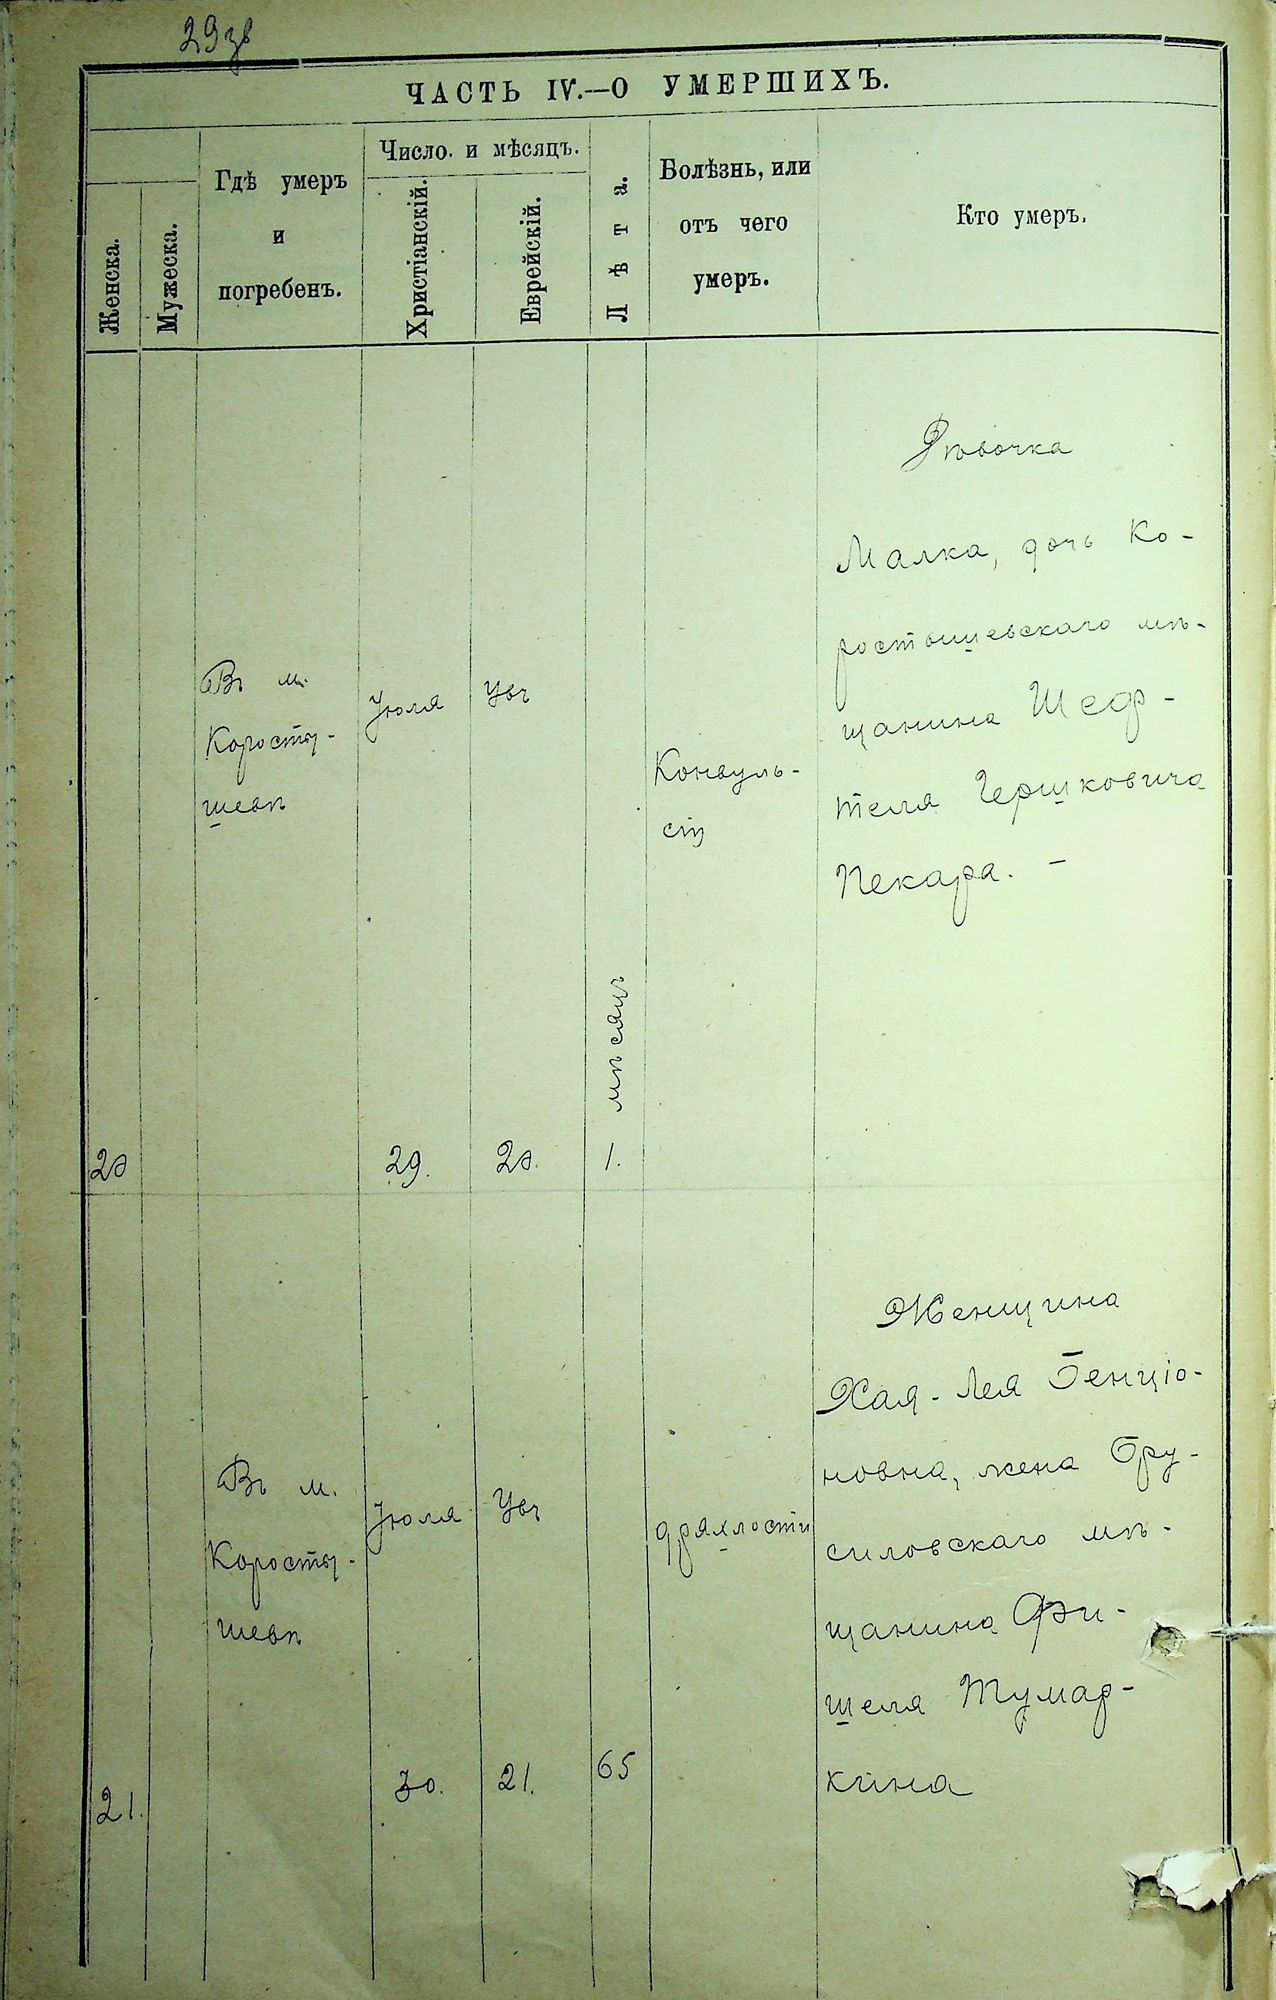 29 зв
ЧАСТЬ IV.—О УМЕРШИХЪ.
Женска.
Мужеска.
Гдѣ умеръ
и
погребенъ.
Число. и мѣсяцъ.
Христіанскій.
Еврейскій.
Лѣта.
Болѣзнь, или
отъ чего
умеръ.
Кто умеръ.
20
Въ м.
Коросты-
шевѣ
Іюля
29.
20.
1.
мѣсяцъ
Конвуль-
сіи
Дѣвочка
Малка, дочь Ко-
ростышевскаго мѣ-
щанина Шеф-
теля Гершковича
Пекара. —
21.
Въ м.
Коросты-
шевѣ
Іюля
30.
21.
65
дряхлости
Женщина
Хая-Лея Бенціо-
новна, жена Бру-
силовскаго мѣ-
щанина Фи-
шеля Тумар-
кина